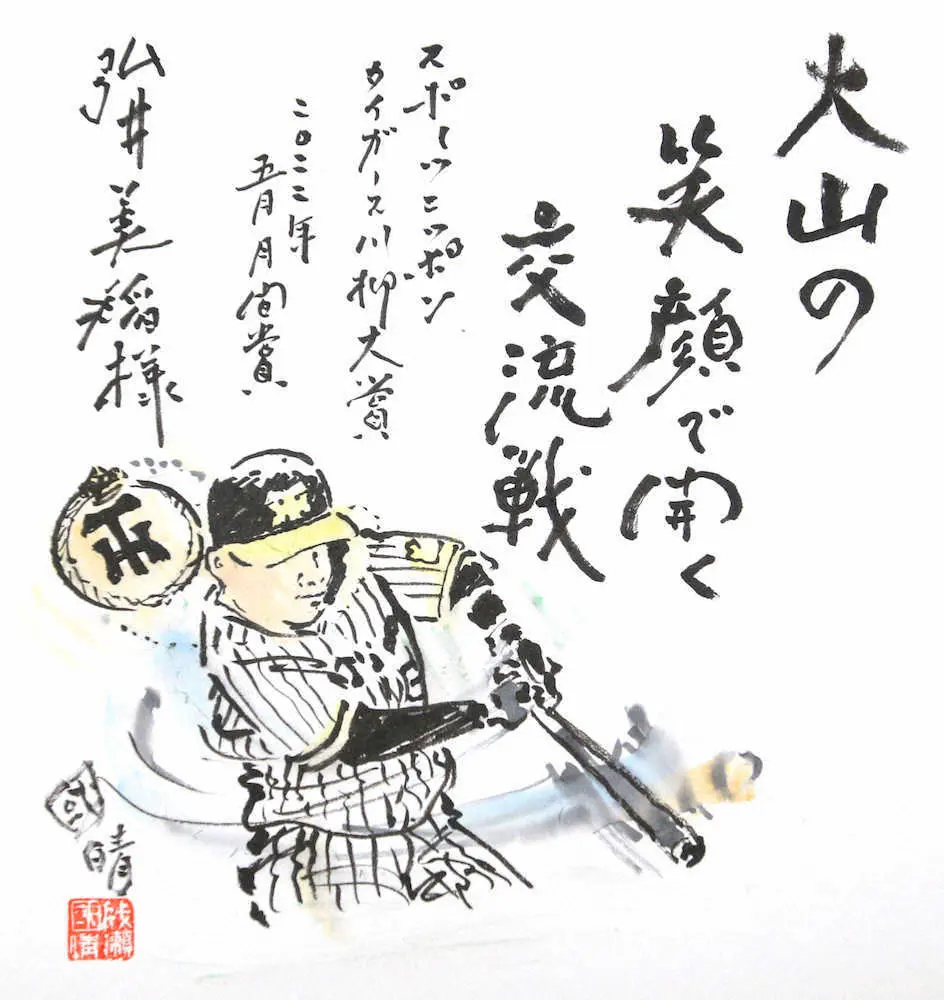 大山の
笑顔で開く
交流戦
スポーツニッポン
タイガース川柳大賞
二〇二二年
五月月間賞
弘井美稲様
國晴
成瀬國晴